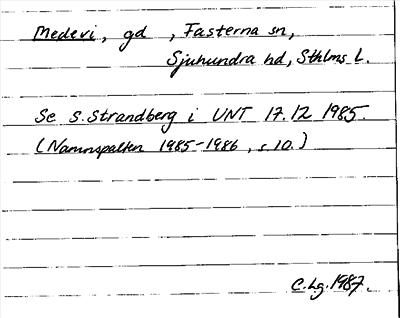 Medevi, gd , Fasterna sn,
Sjuhundra hd, Sthlms L.
Se S. Strandberg i UNT 17.12 1985.
(Namnspalten 1985-1986, s. 10.)
C. Lg. 1987.